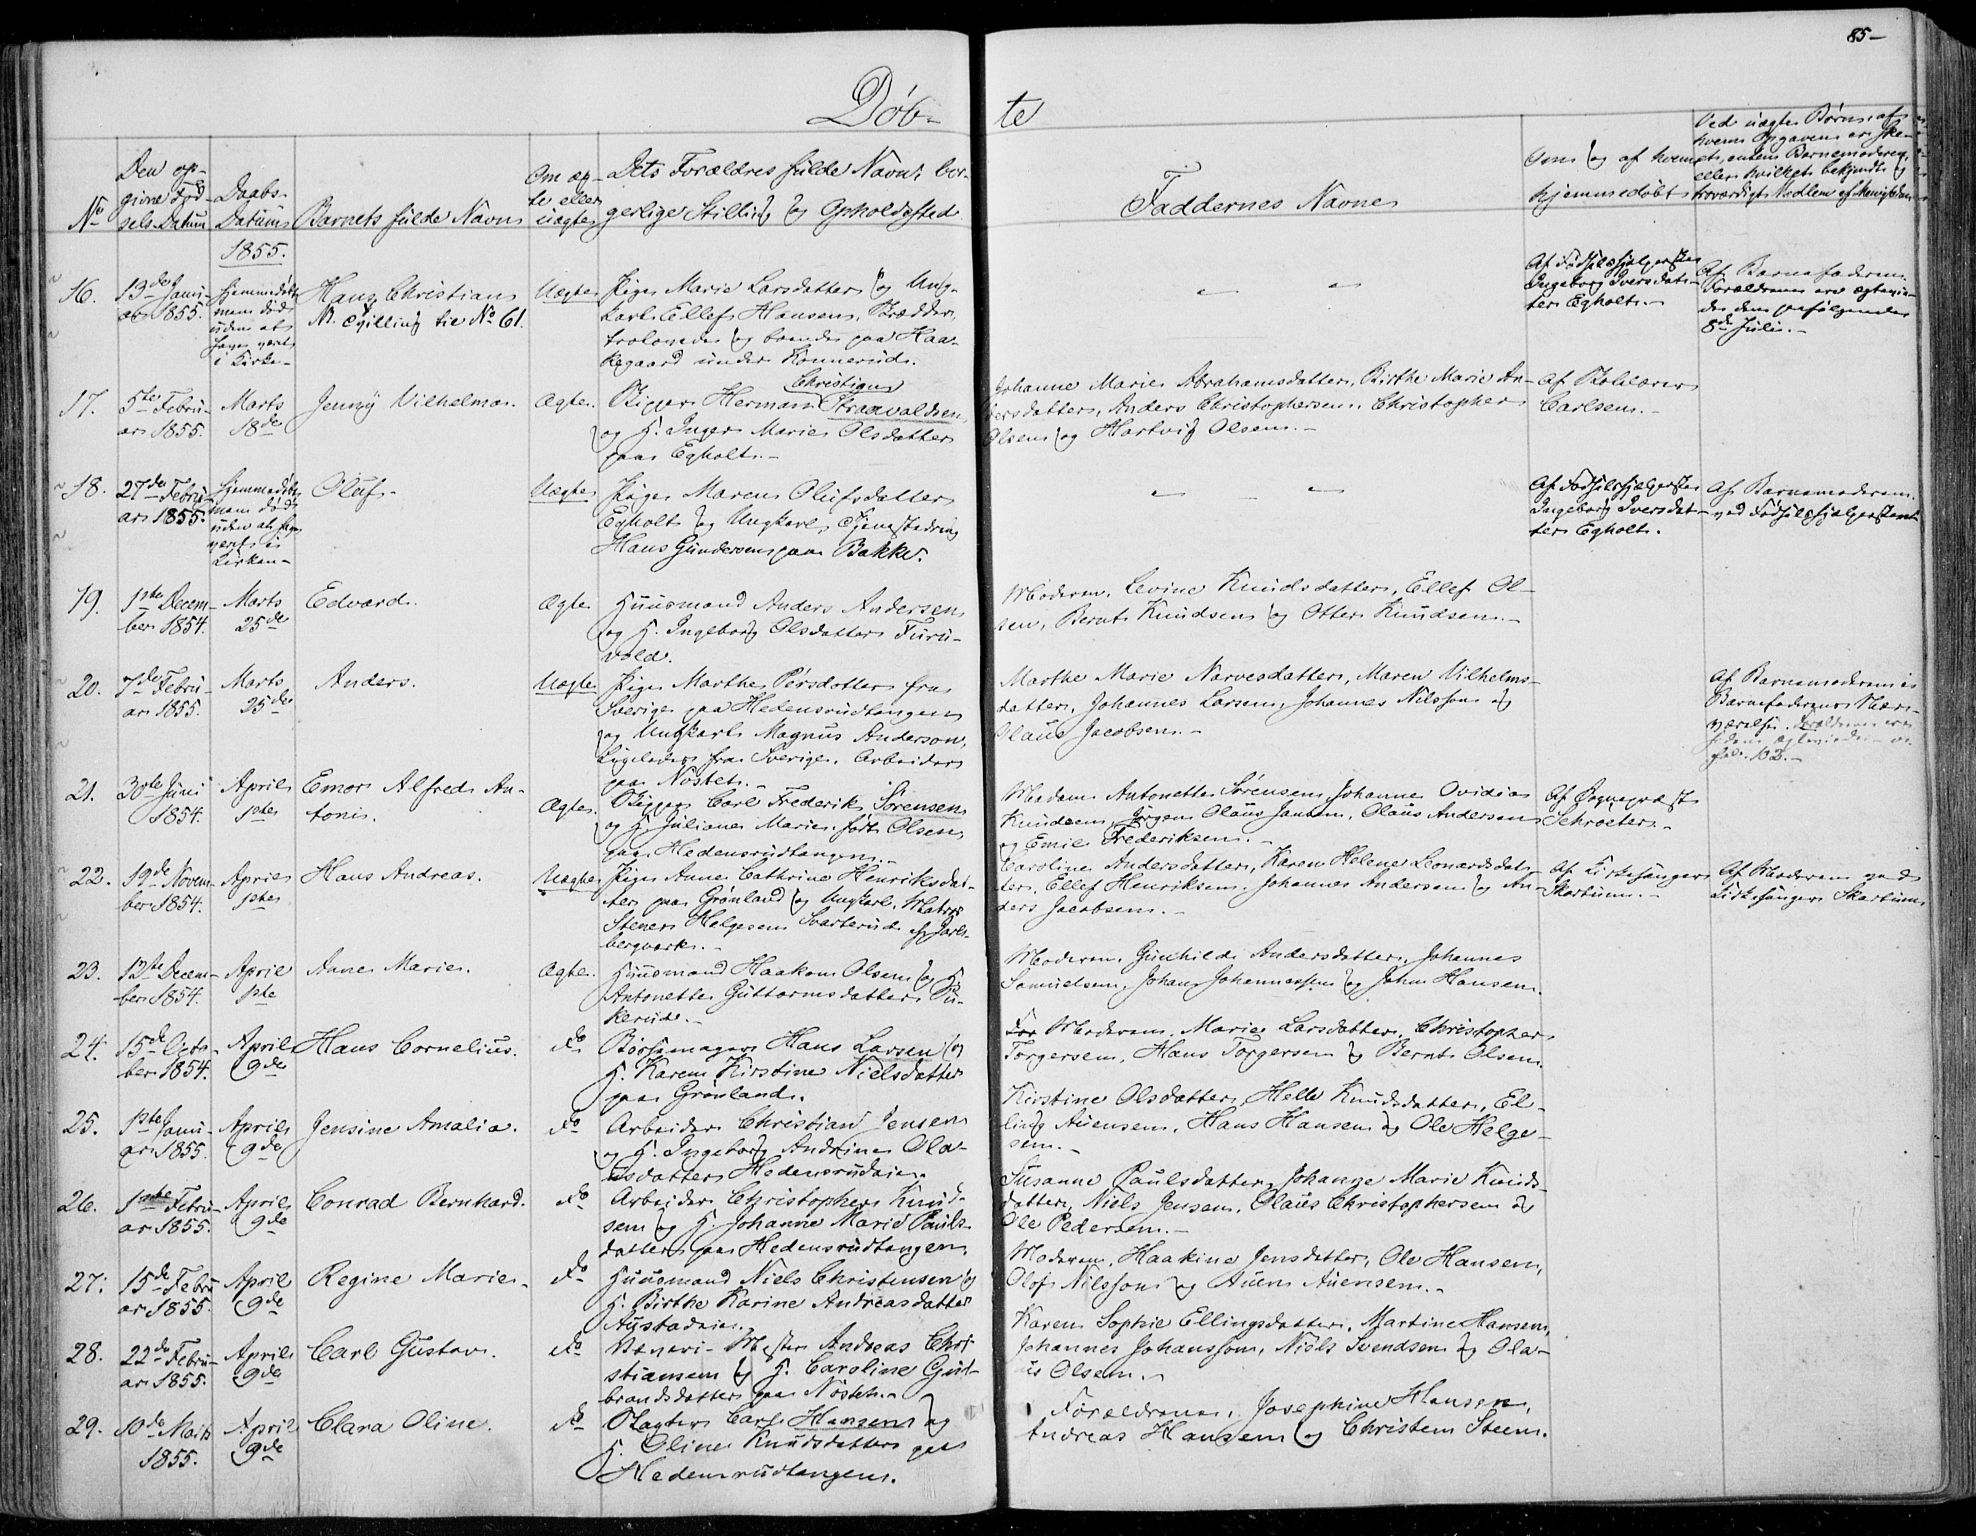 85-
Døb- te
No
Den op-
givne Fød-
sels Datum
Daabs-
Datum
1855.
Barnets fulde Navn
Om æg-
te eller
uægte
Dets Forældres fulde Navn, bor-
gerlige Stilling og Opholdssted
Faddernes Navne
Om og af hvem
hjemmedøbt
Ved uægte Børn: af
hvem Opgaven er ske-
et, enten Barnemoderen,
eller hvilket bekjendt og
troværdigt Medlem af Menigheden
16.
13de Janu-
ar 1855.
hjemmedøbt
men død
uden at
have været
i Kirke-
Hans Christian
N. Tvilling til No 61.
Uægte
Pige Marie Larsdatter og Ung-
karl Ellef Hansen,
trolovede og boende paa Haa-
kegaard under Konnerud.
Af Fødselshjælpersken
Ingeborg Iversdat-
ter Egholt.-
Af Barnefaderen.
Forældrene ere ægtevie-
de den paafølgende
8de Juli.-
17.
5te Febru-
ar 1855.
Marts
18de
Jenny Vilhelma.
Ægte.
Rigger Herman Christian Straavaldsen
og H. Inger Marie Olsdatter
paa Egholt.-
Johanne Marie Abrahamsdatter, Birthe Marie An-
dersdatter, Anders Christophersen, Christopher
Olsen og Hartvig Olsen.-
Af Skolelærer
Carlsen.-
18.
27de Febru-
ar 1855.
hjemmedøbt
men død
uden at have
været i
Kirken-
Oluf.
Uægte
Pige Maren Olufsdatter
Egholt og Ungkarl, Tjenestedreng
Hans Gundersen paa Bakke.
Af Fødselshjælpersken
Ingeborg Iversdat-
ter Egholt.
Af Barnemoderen
ved Fødselshjælpersken
19.
1ste Decem-
ber 1854.
Marts
25de
Edvard.
Ægte
Huusmand Anders Andersen
og H. Ingeborg Olsdatter Furu-
vold.
Moderen, Levine Knudsdatter, Ellef Ol-
sen, Bernt Knudsen og Otter Knudsen.-
20.
7de Febru-
ar 1855.
Marts
25de
Anders.
Uægte
Pige Marthe Persdotter fra
Sverige paa Hedensrudtangen
og Ungkarl Magnus Anderson,
Ligeledes fra Sverige, Arbeider
paa Nøstet.-
Marthe Marie Narvesdatter, Maren Vilhelms-
datter, Johannes Larsen, Johannes Nilsson og
Olaus Jacobsen.-
Af Barnemoderen i
Barnefaderens Nær-
værelse. Forældrene ere
siden ægteviede
102.-
21.
30te Juni
1854.
April
1ste
Emor Alfred An-
toni.
Ægte.
Rigger Carl Frederik Sørensen
og H. Juliane Marie født Olsen
paa Hedensrudtangen.-
Madam Antonette Sørensen, Johanne Ovidia
Knudsen, Jørgen Olaus Jansen, Olaus Andersen
og Emil Frederiksen.-
Af Sogneprest
Schroeter.-
22.
19de Novem-
ber 1854.
April
1ste
Hans Andreas.
Uægte
Pige Anne Cathrine Henriksdat-
ter paa Grønland og Ungkarl, Matros
Stener Helgesen Svarterud af Jarls-
bergværk.-
Caroline Andersdatter, Karen Helene Leonardsdat-
ter, Ellef Henriksen, Johannes Andersen og An-
ders Jacobsen.-
Af Kirkesanger
Skartum.-
Af Moderen ved
Kirkesanger Skartum
23.
12te Decem-
ber 1854.
April
1ste
Anne Marie.
Ægte.
Huusmand Haakon Olsen og H.
Antonette Guttormsdatter
kerud.-
Moderen, Gunhilde Andersdatter, Johannes
Samuelsen, Johan Johannessen og John Hansen.
24.
15de Octo-
ber 1854.
April
9de
Hans Cornelius.
do
Børsemager Hans Larsen og
H. Karen Kirstine Nielsdatter
paa Grønland.
Moderen, Marie Larsdatter, Christopher
Torgersen, Hans Torgersen og Bernt Olsen.
25.
1ste Janu-
ar 1855.
April
9de
Jensine Amalia.
do
Arbeider Christian Jensen
og H. Ingeborg Andrine Ola-
usdatter Hedensrudeie.
Kirstine Olsdatter, Helle Knudsdatter, El-
ling Auensen, Hans Hansen og Ole Helge-
sen.-
26.
1ste Febru-
ar 1855.
April
9de
Conrad Bernhard.
do
Arbeider Christopher Knud-
sen og H. Johanne Marie Pauls-
datter paa Hedensrudtangen.
Susanne Paulsdatter, Johanne Marie Knuds-
datter, Niels Jensen, Olaus Christophersen og
Ole Pedersen.-
27.
15de Febru-
ar 1855.
April
9de
Regine Marie.
do
Huusmand Niels Christensen og
H. Birthe Karine Andreasdatter
Austadeie.
Moderen, Haakine Jensdatter, Ole Hansen,
Olof Nilsson og Auen Auensen.-
28.
22de Febru-
ar 1855.
April
9de
Carl Gustav.
do
Mester Andreas Chri-
stiansen og H. Caroline Gud-
brandsdatter paa Nøstet.-
Karen Sophie Ellingsdatter, Martine Hansen,
Johannes Johansson, Niels Svendsen og Ola-
us Olsen.-
29.
10de Marts
1855.
April
9de
Clara Oline.
do
Slagter Carl Hansen og
H. Oline Knudsdatter paa
Hedensrudtangen.
Forældrene, Josephine Hansen,
Andreas Hansen og Christen Steen.